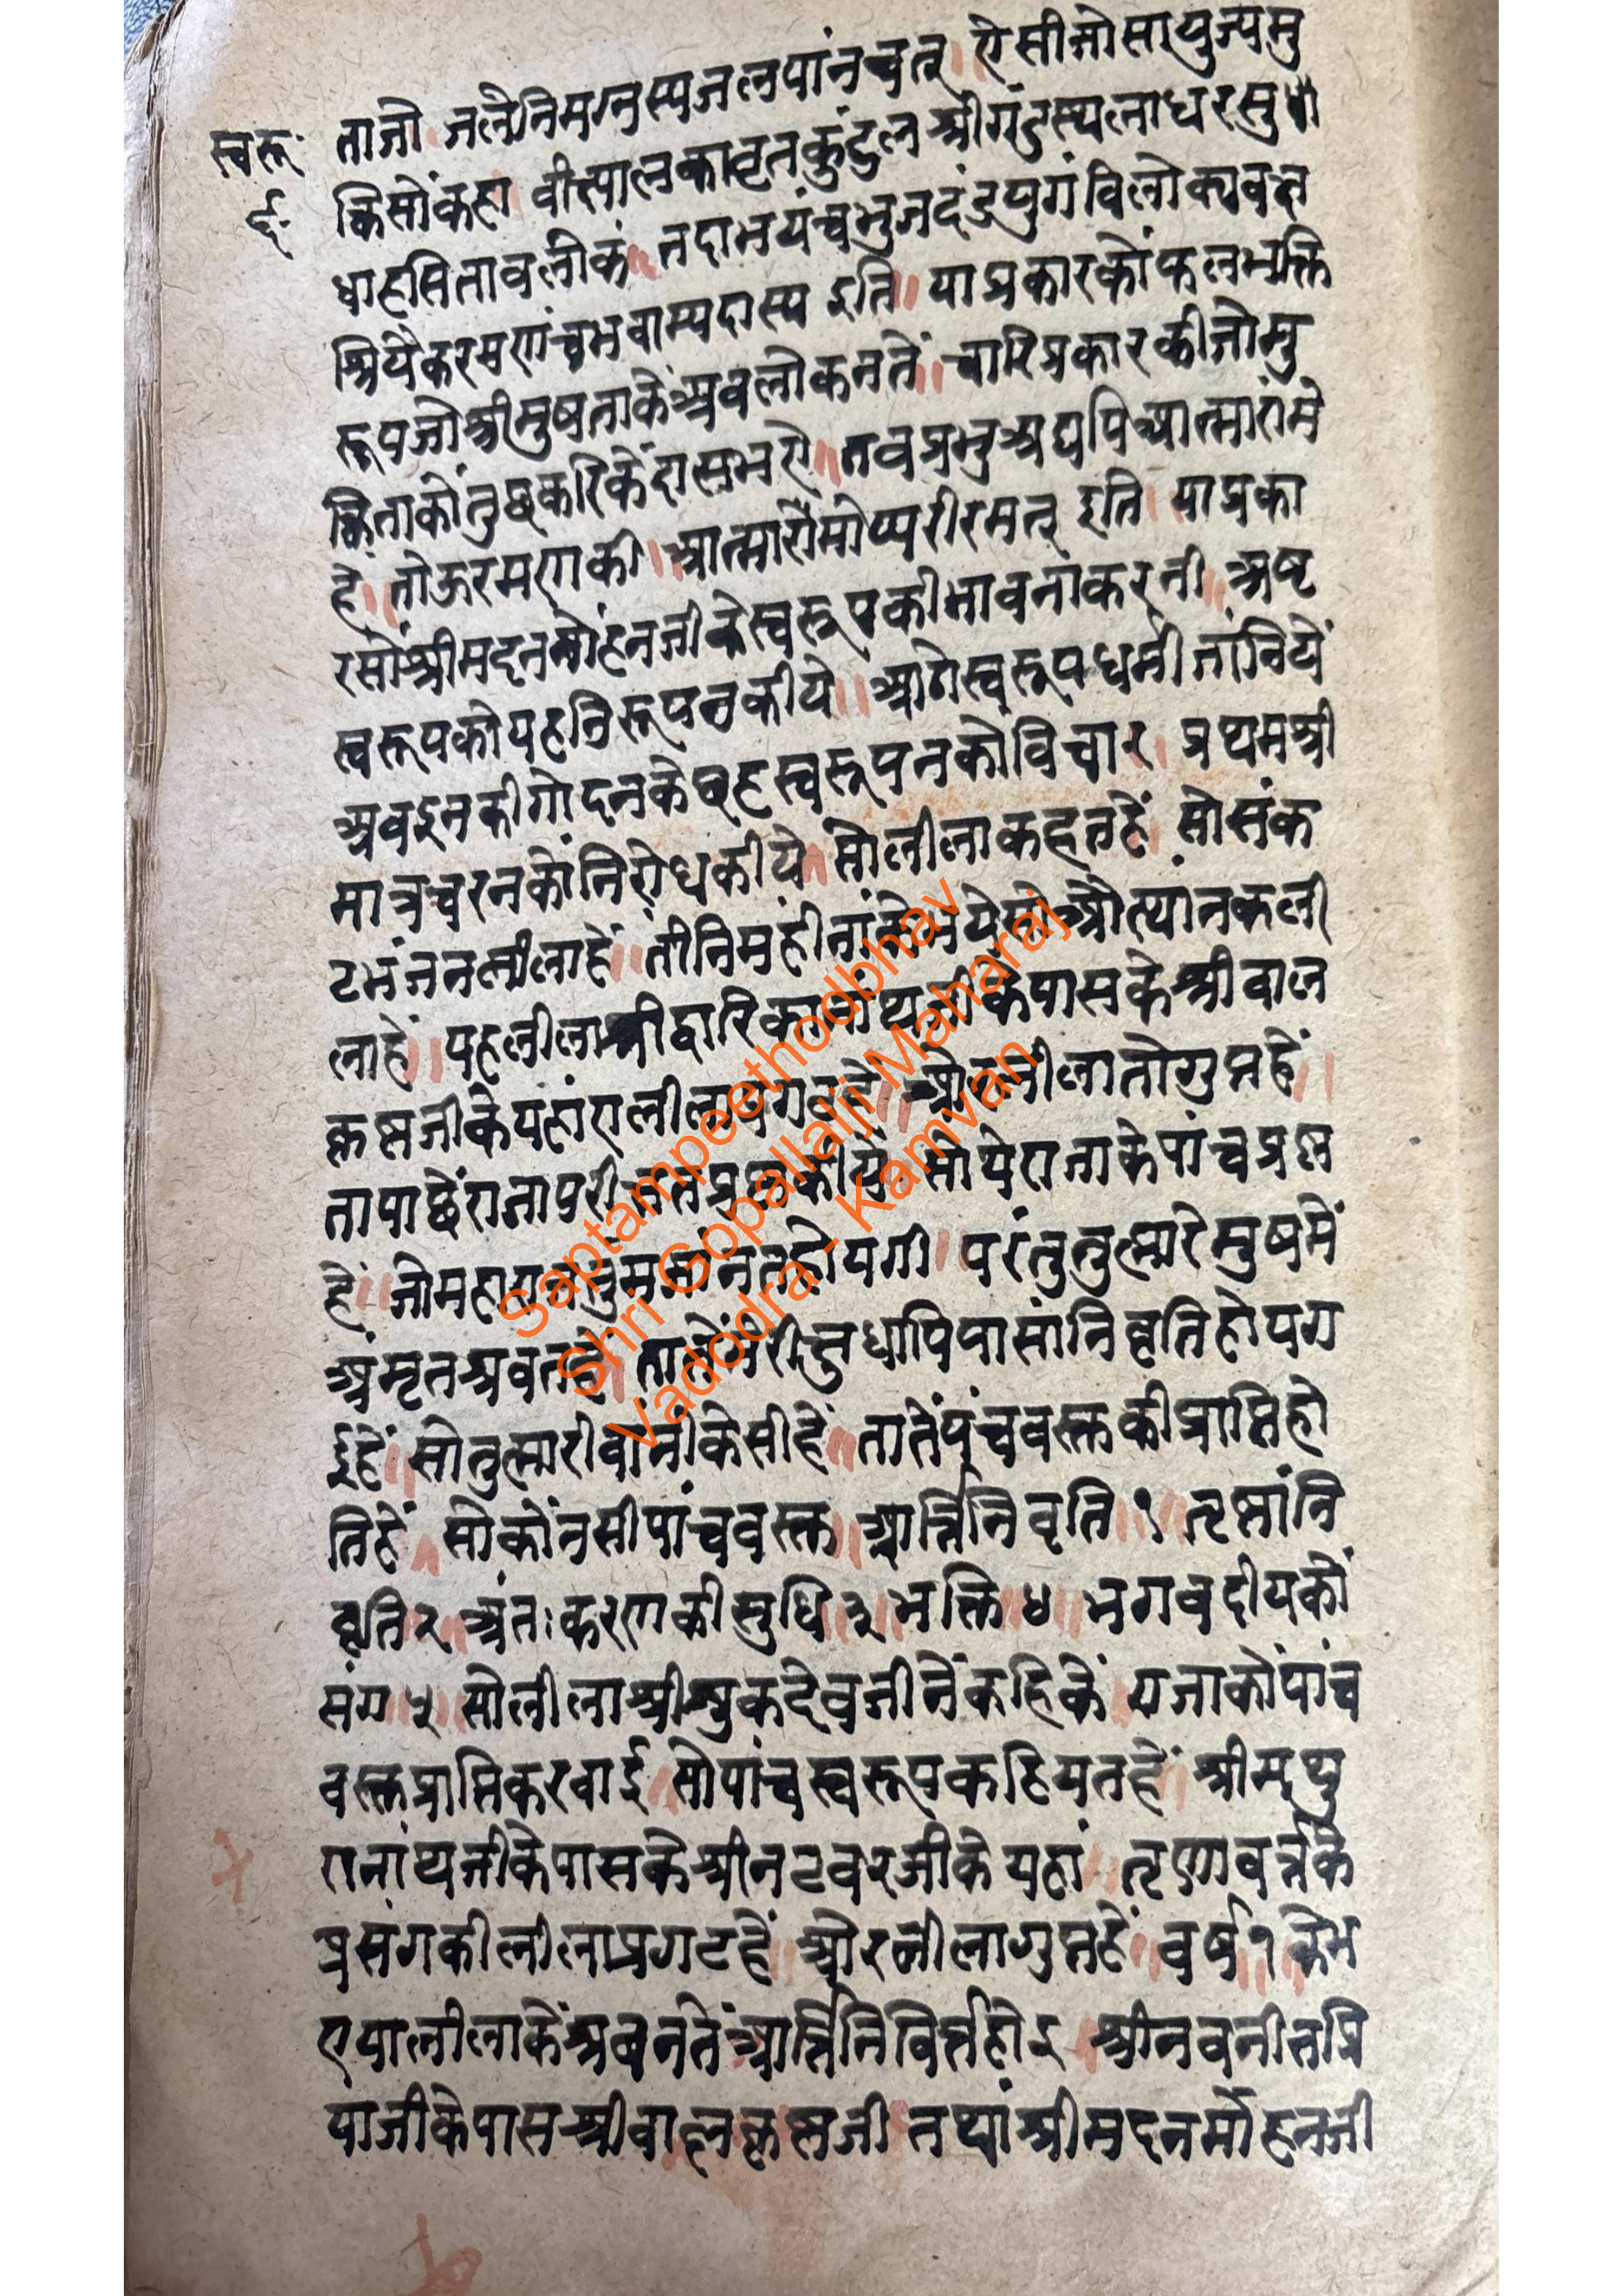 स्वरू
ई.
ताजो जलैनिमग्नस्यजलपांनवत् ऐसीजोसायुज्यमु
क्तिसोंकहा वीक्ष्यालकावृतकुंडलश्रीगंडस्थलाधरसुधां
धाहसितावलोकं नदाभयंचभुजदंडयुगंविलोक्यवक्ष
श्रियैकरमणंचभवाम्यदास्य इति याप्रकारकोफलभक्ति
रूपजोश्रीमुषताकेअवलोकनतें चारिप्रकारकीजोमु
क्तिताकोंतुछकरिकेंदासभए तवप्रभुअद्यपिआत्मारांमे
हे तोऊरमणकी आत्मारांमोप्यरीरमत् इति याप्रका
रसोंश्रीमदनमोहनजीकेस्वरूपकीभावनांकरनी अष्ट
स्वरूपकोयहनिरूपनकीये आगेस्वरूपधर्मीजांनिये
अवइनकीगोदनकेबृहस्वरूपनकोविचार प्रथमश्री
मात्रचरनकोंनिरोधकीये सोलीलाकहतहें सोसंक
टभंजनलीलाहें तीनिमहीनांकेभयेसोऔत्थांनकली
लाहें यहलीलाश्रीद्वारिकानांथजीकेपासकेश्रीबाल
कृष्णजीकेयहांएलीलाप्रगटहे औरलीलातोगुप्तहें
तापाछेंराजापरीक्षतप्रश्नकीये सोयेराजाकेपांचप्रश्न
हें जोमहाराजतुमजांनतहोयगी परंतुतुह्मारेमुषमें
अंमृतश्रवतहे तातेंमेरीक्षुधापिपासांनिवृतिहोयग
ईहें सोतुह्मारीवांनीकेसीहें तातेंपंचवस्तकीप्राप्तिहो
तिहें सोकोंनसीपांचवस्त आर्त्तिनिवृति १ तृष्णांनि
वृति २ अंतःकरणकीसुधि ३ भक्ति ४ भगवदीयकों
संग ५ सोलीलाश्रीशुकदेवजीनेंकहिकें राजाकोंपांच
वस्तप्राप्तिकरवाई सोपांचस्वरूपकहियतहें श्रीमथु
रानांथजीकेपासकेश्रीनटवरजीके यहां तृणावर्त्तके
प्रसंगकीलीलाप्रगटहें औरलीलागुप्तहें वर्ष १ केभ
एयालीलाकेंश्रवनतेंआर्त्तिनिवर्त्तहोइ श्रीनवनीतप्रि
याजीकेपासश्रीबालकृष्णजी तथांश्रीमदनमोंहनजी
Saptampeethodbhav
Shri Gopallalji Maharaj
Vadodra - Kamvan